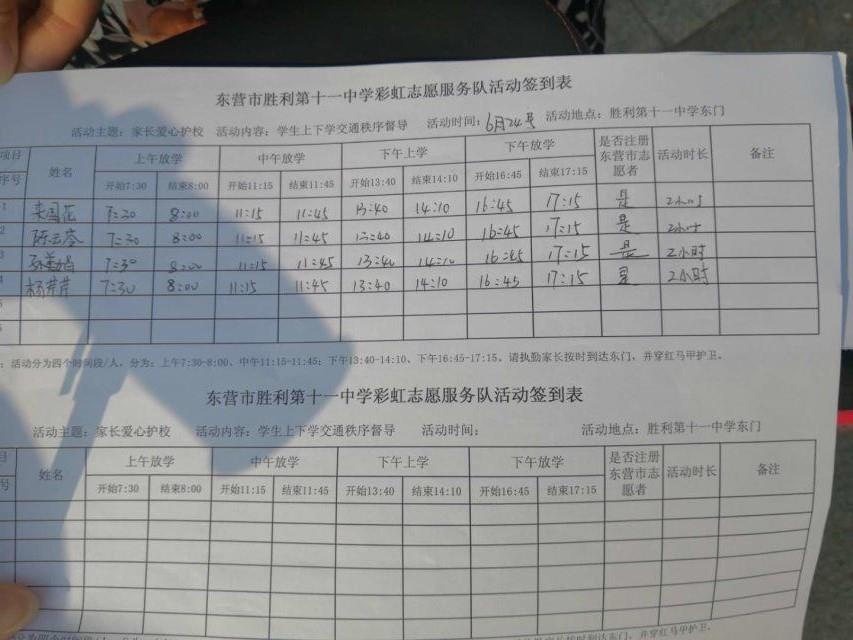 东营市胜利第十一中学彩虹志愿服务队活动签到表
活动主题：家长爱心护校 活动内容：学生上下学交通秩序督导 活动时间：6月24号 活动地点：胜利第十一中学东门
项目 姓名 上午放学 中午放学 下午上学 下午放学 是否注册东营市志愿者 活动时长 备注
序号 开始7:30 结束8:00 开始11:15 结束11:45 开始13:40 结束14:10 开始16:45 结束17:15
1 7:30 8:00 11:15 11:45 13:40 14:10 16:45 17:15 是 2小时
2 7:30 8:00 11:15 11:45 13:40 14:10 16:45 17:15 是 2小时
3 7:30 8:00 11:15 11:45 13:40 14:10 16:45 17:15 是 2小时
4 杨芹芹 7:30 8:00 11:15 11:45 13:40 14:10 16:45 17:15 是 2小时
5
6
：活动分为四个时间段/人，分为：上午7:30-8:00、中午11:15-11:45；下午13:40-14:10、下午16:45-17:15。请执勤家长按时到达东门，并穿红马甲护卫。
东营市胜利第十一中学彩虹志愿服务队活动签到表
活动主题：家长爱心护校 活动内容：学生上下学交通秩序督导 活动时间： 活动地点：胜利第十一中学东门
目 姓名 上午放学 中午放学 下午上学 下午放学 是否注册东营市志愿者 活动时长 备注
号 开始7:30 结束8:00 开始11:15 结束11:45 开始13:40 结束14:10 开始16:45 结束17:15